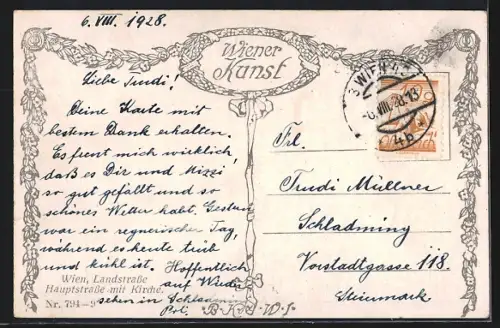 6. VIII. 1928.
Wiener
Kunst
Liebe Trudi!
Deine Karte mit
bestem Dank erhalten.
Es freut mich wirklich,
daß es Dir und Mizzi
so gut gefällt und so
schönes Wetter habt. Gestern
war ein regnerischer Tag,
während es heute trüb
und kühl ist. Hoffentlich
auf Wieder
sehen in Schladming
Wien, Landstraße
Hauptstraße mit Kirche.
Nr. 794-9
B.K.W.I.
WIEN
VIII. 28
4b
Frl.
Trudi Müllner
Schladming
Vorstadtgasse 118.
Steiermark